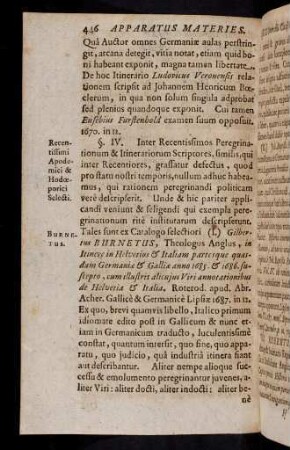 446 APPARATUS MATERIES.
Quâ Auctor omnes Germaniæ aulas perstrin-
git, arcana detegit, vitia notat, etiam quid bo-
ni habeant exponit, magna tamen libertate.
De hoc Itinerario Ludovicus Veronensis re-
lationem scripsit ad Johannem Henricum Bœ-
clerum, in qua non solum singula adprobat
sed plenius quandoque exponit. Cui tamen
Eusebius Furstenhold examen suum opposuit.
1670. in 12.
Recen-
tissimi
Apode-
mici &
Hodœ-
porici
Selecti.
§. IV. Inter Recentissimos Peregrina-
tionum & Itinerariorum Scriptores, similis, qui
inter Recentiores, grassatur defectus, quod
pro statu nostri temporis, nullum adhuc habea-
mus, qui rationem peregrinandi politicam
verè descripserit. Unde & hic pariter appli-
candi venium & seligendi qui exempla pere-
grinationum ritè institutarum descripserunt.
Tales sunt ex Catalogo selectiori (1.) Gilber-
BURNE-
TUS.
tus BURNETUS, Theologus Anglus, in
Itinere in Helvetios & Italiam partesque quas-
dam Germaniæ & Gallia anno 1685. & 1686. su-
scepto, cum illustris alicujus Viri annotationibus
de Helvetia & Italia, Roterod. apud. Abr.
Acher. Gallicè & Germanicè Lipsiæ 1687. in 12.
Ex quo, brevi quamvis libello, Italico primum
idiomate edito post in Gallicum & nunc et-
iam in Germanicum traducto, luculentissimè
constat, quantum intersit, quo fine, quo appa-
ratu, quo judicio, quâ industriâ itinera fiant
aut describantur. Aliter nempe alioque suc-
cessu & emolumento peregrinantur juvenes, a-
liter Viri: aliter docti, aliter indocti: aliter be-
nè